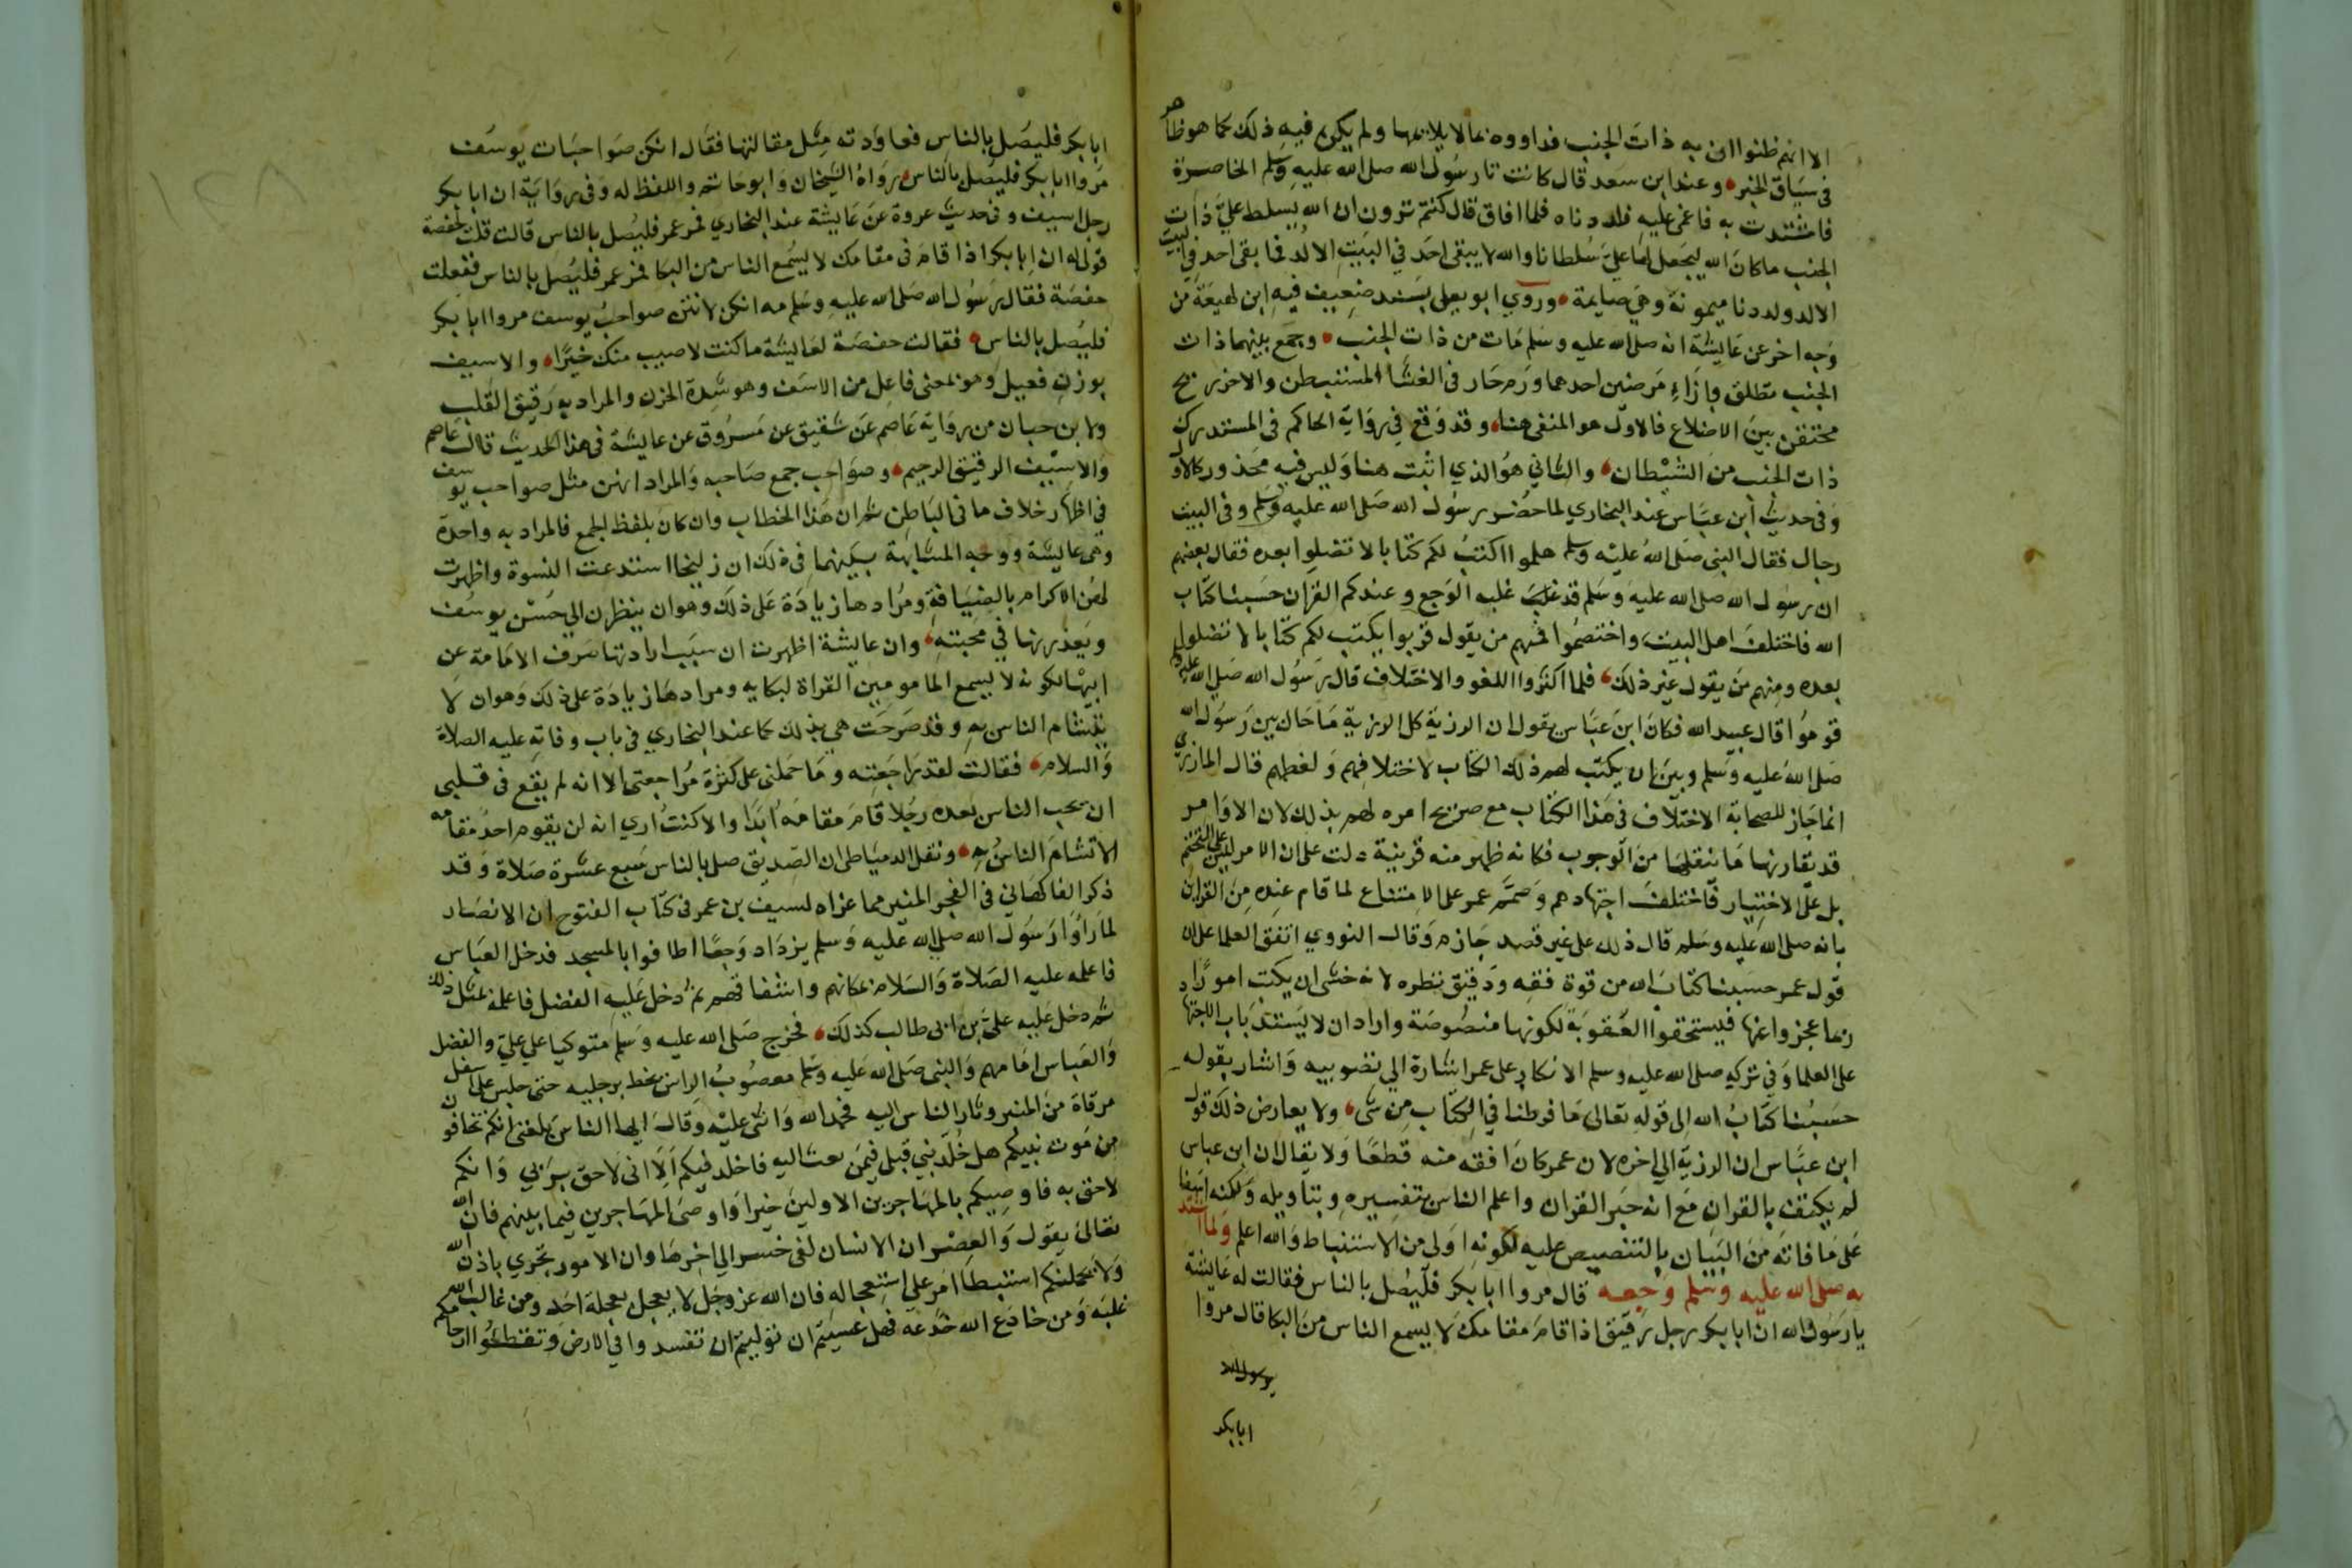 الا انهم ظنوا ان به ذات الجنب فداووه بما لا يلايمها ولم يكن فيه ذلك كما هو ظاهر
في سياق الخبر وعند ابن سعد قال كانت تا رسول الله صلى الله عليه وسلم الخاصرة
فاشتدت به فاغمى عليه فلددناه فلما افاق قال كنتم ترون ان الله يسلط علي ذات
الجنب ما كان الله ليجعل لها علي سلطانا والله لا يبقى احد في البيت الا لد فما بقى احد في البيت
الا لد ولددنا ميمونة وهي صايمة وروي ابو يعلى بسند ضعيف فيه ابن لهيعة من
وجه اخر عن عايشة انه صلى الله عليه وسلم مات من ذات الجنب وجمع بينهما ذات
الجنب تطلق بازاء مرضين احدهما ورم حار في الغشا المستبطن والاخر ريح
محتقن بين الاضلاع فالاول هو المنفى هنا وقد وقع في رواية الحاكم في المستدرك
ذات الجنب من الشيطان والثاني هو الذي اثبت هنا وليس فيه محذور كالاول
وفي حديث ابن عباس عند البخاري لما حضر رسول الله صلى الله عليه وسلم وفي البيت
رجال فقال النبي صلى الله عليه وسلم هلموا اكتب لكم كتابا لا تضلوا بعده فقال بعضهم
ان رسول الله صلى الله عليه وسلم قد غلب غلبه الوجع وعندكم القران حسبنا كتاب
الله فاختلف اهل البيت واختصموا فمنهم من يقول قربوا يكتب لكم كتابا لا تضلوا
بعده ومنهم من يقول غير ذلك فلما اكثروا اللغو والاختلاف قال رسول الله صلى الله عليه
قوموا قال عبيد الله فكان ابن عباس يقول ان الرزية كل الرزية ما حال بين رسول الله
صلى الله عليه وسلم وبين ان يكتب لهم ذلك الكتاب لاختلافهم ولغطهم قال المازري
انما جاز للصحابة الاختلاف في هذا الكتاب مع صريح امره لهم بذلك لان الاوامر
قد يقارنها ما ينقلها من الوجوب فكانه ظهر منه قرينة دلت على ان الامر ليس على التحتم
بل على الاختيار فاختلف اجتهادهم وصمم عمر على الامتناع لما قام عنده من القراين
بانه صلى الله عليه وسلم قال ذلك على غير قصد جازم وقال النووي اتفق العلما على ان
قول عمر حسبنا كتاب الله من قوة فقهه ودقيق نظره لانه خشى ان يكتب امورا
ربما عجزوا عنها فيستحقوا العقوبة لكونها منصوصة واراد ان لا يستد باب الاجتهاد
على العلما وفي تركه صلى الله عليه وسلم الانكار على عمر اشارة الي تصويبه واشار بقوله
حسبنا كتاب الله الى قوله تعالى ما فرطنا في الكتاب من شي ولا يعارض ذلك قول
ابن عباس ان الرزية الي اخره لان عمر كان افقه منه قطعا ولا يقال ان ابن عباس
لم يكتف بالقران مع انه حبر القران واعلم الناس بتفسيره وبتاويله ولكنه اسفا
على ما فاته من البيان بالتنصيص عليه لكونه اولى من الاستنباط والله اعلم ولما اشتد
به صلى الله عليه وسلم وجعه قال مروا ابا بكر فليصل بالناس فقالت له عايشة
يا رسول الله ان ابا بكر رجل رقيق اذا قام مقامك لا يسمع الناس من البكا قال مروا
ابا بكر
ابا بكر فليصل بالناس فعاودته مثل مقالتها فقال انكن صواحبات يوسف
مروا ابا بكر فليصل بالناس رواه الشيخان وابو حاتم واللفظ له وفي رواية ان ابا بكر
رجل اسيف وفي حديث عروة عن عايشة عند البخاري فمر عمر فليصل بالناس قالت قلت لحفصة
قولى له ان ابا بكر اذا قام في مقامك لا يسمع الناس من البكا فمر عمر فليصل بالناس ففعلت
حفصة فقال رسول الله صلى الله عليه وسلم مه انكن لانتن صواحب يوسف مروا ابا بكر
فليصل بالناس فقالت حفصة لعايشة ما كنت لاصيب منك خيرا والاسيف
بوزن فعيل وهو بمعنى فاعل من الاسف وهو شدة الحزن والمراد به رقيق القلب
ولابن حبان من رواية عاصم عن شقيق عن مسروق عن عايشة في هذا الحديث قال عاصم
والاسيف الرقيق الرحيم وصواحب جمع صاحبه والمراد انهن مثل صواحب يوسف
في اظهار خلاف ما في الباطن ثم ان هذا الخطاب وان كان بلفظ الجمع فالمراد به واحدة
وهي عايشة ووجه المشابهة بينهما في ذلك ان زليخا استدعت النسوة واظهرت
لهن الاكرام بالضيافة ومرادها زيادة على ذلك وهو ان ينظرن الي حسن يوسف
ويعذرنها في محبته وان عايشة اظهرت ان سبب ارادتها صرف الامامة عن
ابيها لكونه لا يسمع المامومين القراة لبكايه ومرادها زيادة على ذلك وهو ان لا
يتشام الناس به وقد صرحت هي بذلك كما عند البخاري في باب وفاته عليه الصلاة
والسلام فقالت لقد راجعته وما حملنى على كثرة مراجعتى الا انه لم يقع في قلبي
ان يحب الناس بعده رجلا قام مقامه ابدا والا كنت اري انه لن يقوم احد مقامه
الا تشام الناس به ونقل الدمياطى ان الصديق صلى بالناس سبع عشرة صلاة وقد
ذكر الفاكهاني في الفجر المنير مما عزاه لسيف بن عمر في كتاب الفتوح ان الانصار
لما راوا رسول الله صلى الله عليه وسلم يزداد وجعا اطافوا بالمسجد فدخل العباس
فاعلمه عليه الصلاة والسلام بمكانهم واشفاقهم ثم دخل عليه الفضل فاعلمه بمثل ذلك
ثم دخل عليه علي بن ابى طالب كذلك فخرج صلى الله عليه وسلم متوكيا على علي والفضل
والعباس امامهم والنبي صلى الله عليه وسلم معصوب الراس يخط برجليه حتى جلس على اسفل
مرقاة من المنبر وثار الناس اليه فحمد الله واثنى عليه وقال ايها الناس بلغنى انكم تخافون
من موت نبيكم هل خلد نبي قبلى فيمن بعث اليه فاخلد فيكم الا انى لاحق بربي وانكم
لاحق به فاوصيكم بالمهاجرين الاولين خيرا واوصى المهاجرين فيما بينهم فان الله
تعالى يقول والعصر ان الانسان لفى خسر الي اخرها وان الامور تجري باذن الله
ولا يحملنكم استبطا امر على استعجاله فان الله عز وجل لا يعجل بعجلة احد ومن غالب الله
غلبه ومن خادع الله خدعه فهل عسيتم ان توليتم ان تفسدوا في الارض وتقطعوا ارحامكم